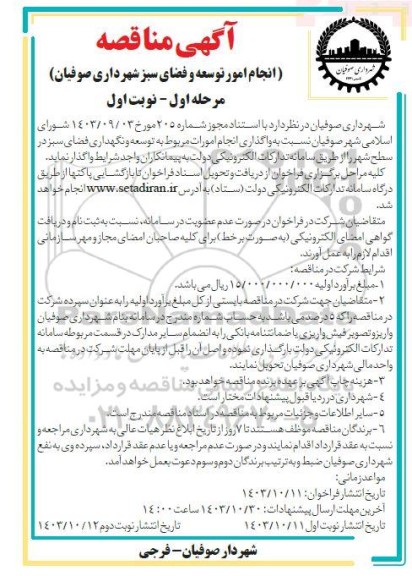 آگهی مناقصه
(انجام امور توسعه و فضای سبز شهرداری صوفیان)
مرحله اول - نوبت اول
شهرداری صوفیان
شهرداری صوفیان در نظر دارد با استناد مجوز شماره ۲۰۵ مورخ ۱۴۰۳/۰۹/۰۳ شورای
اسلامی شهر صوفیان نسبت به واگذاری انجام امورات مربوط به توسعه و نگهداری فضای سبز در
سطح شهر را از طریق سامانه تدارکات الکترونیکی دولت به پیمانکاران واجد شرایط واگذار نماید.
کلیه مراحل برگزاری فراخوان از دریافت و تحویل اسناد فراخوان تا بازگشایی پاکتها از طریق
درگاه سامانه تدارکات الکترونیکی دولت (ستاد) به آدرس www.setadiran.ir انجام خواهد
شد.
متقاضیان شرکت در فراخوان در صورت عدم عضویت در سامانه، نسبت به ثبت نام و دریافت
گواهی امضای الکترونیکی (به صورت برخط) برای کلیه صاحبان امضای مجاز و مهر سازمانی
اقدام لازم را به عمل آورند.
شرایط شرکت در مناقصه:
۱-مبلغ برآورد اولیه ۱۵/۰۰۰/۰۰۰/۰۰۰ ریال می باشد.
۲-متقاضیان جهت شرکت در مناقصه بایستی از کل مبلغ برآورد اولیه را به عنوان سپرده شرکت
در مناقصه را که ۵ درصد می باشد به حساب شماره مندرج در سامانه بنام شهرداری صوفیان
واریز و تصویر فیش واریزی یا ضمانتنامه بانکی را به انضمام سایر مدارک در قسمت مربوطه سامانه
تدارکات الکترونیکی دولت بارگذاری نموده و اصل آن را قبل از پایان مهلت شرکت در مناقصه به
واحد مالی شهرداری صوفیان تحویل نمایند.
۳-هزینه چاپ آگهی بر عهده برنده مناقصه خواهد بود.
۴-شهرداری در رد یا قبول پیشنهادات مختار است.
۵-سایر اطلاعات و جزئیات مربوط به مناقصه در اسناد مناقصه مندرج است.
۶-برندگان مناقصه موظف هستند تا ۷ روز از تاریخ ابلاغ نظر هیات عالی به شهرداری مراجعه و
نسبت به عقد قرارداد اقدام نمایند و در صورت عدم مراجعه و یا عدم عقد قرارداد، سپرده وی به نفع
شهرداری صوفیان ضبط و به ترتیب برندگان دوم و سوم دعوت بعمل خواهد آمد.
مواعد زمانی:
تاریخ انتشار فراخوان: ۱۴۰۳/۱۰/۱۱
آخرین مهلت ارسال پیشنهادات: ۱۴۰۳/۱۰/۳۰ ساعت ۱۴:۰۰
تاریخ انتشار نوبت اول ۱۴۰۳/۱۰/۱۱ تاریخ انتشار نوبت دوم ۱۴۰۳/۱۰/۱۲
شهردار صوفیان - فرجی